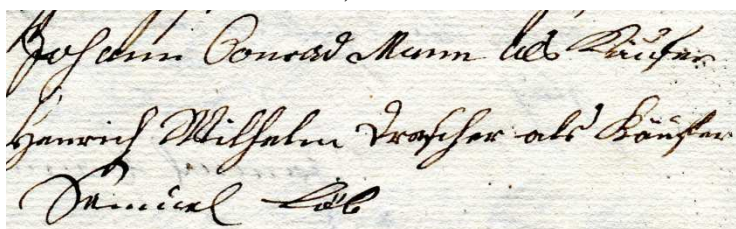 Johann Conrad Mann als Käufer
Henrich Wilhelm Drescher als Käufer
Samuel Löb